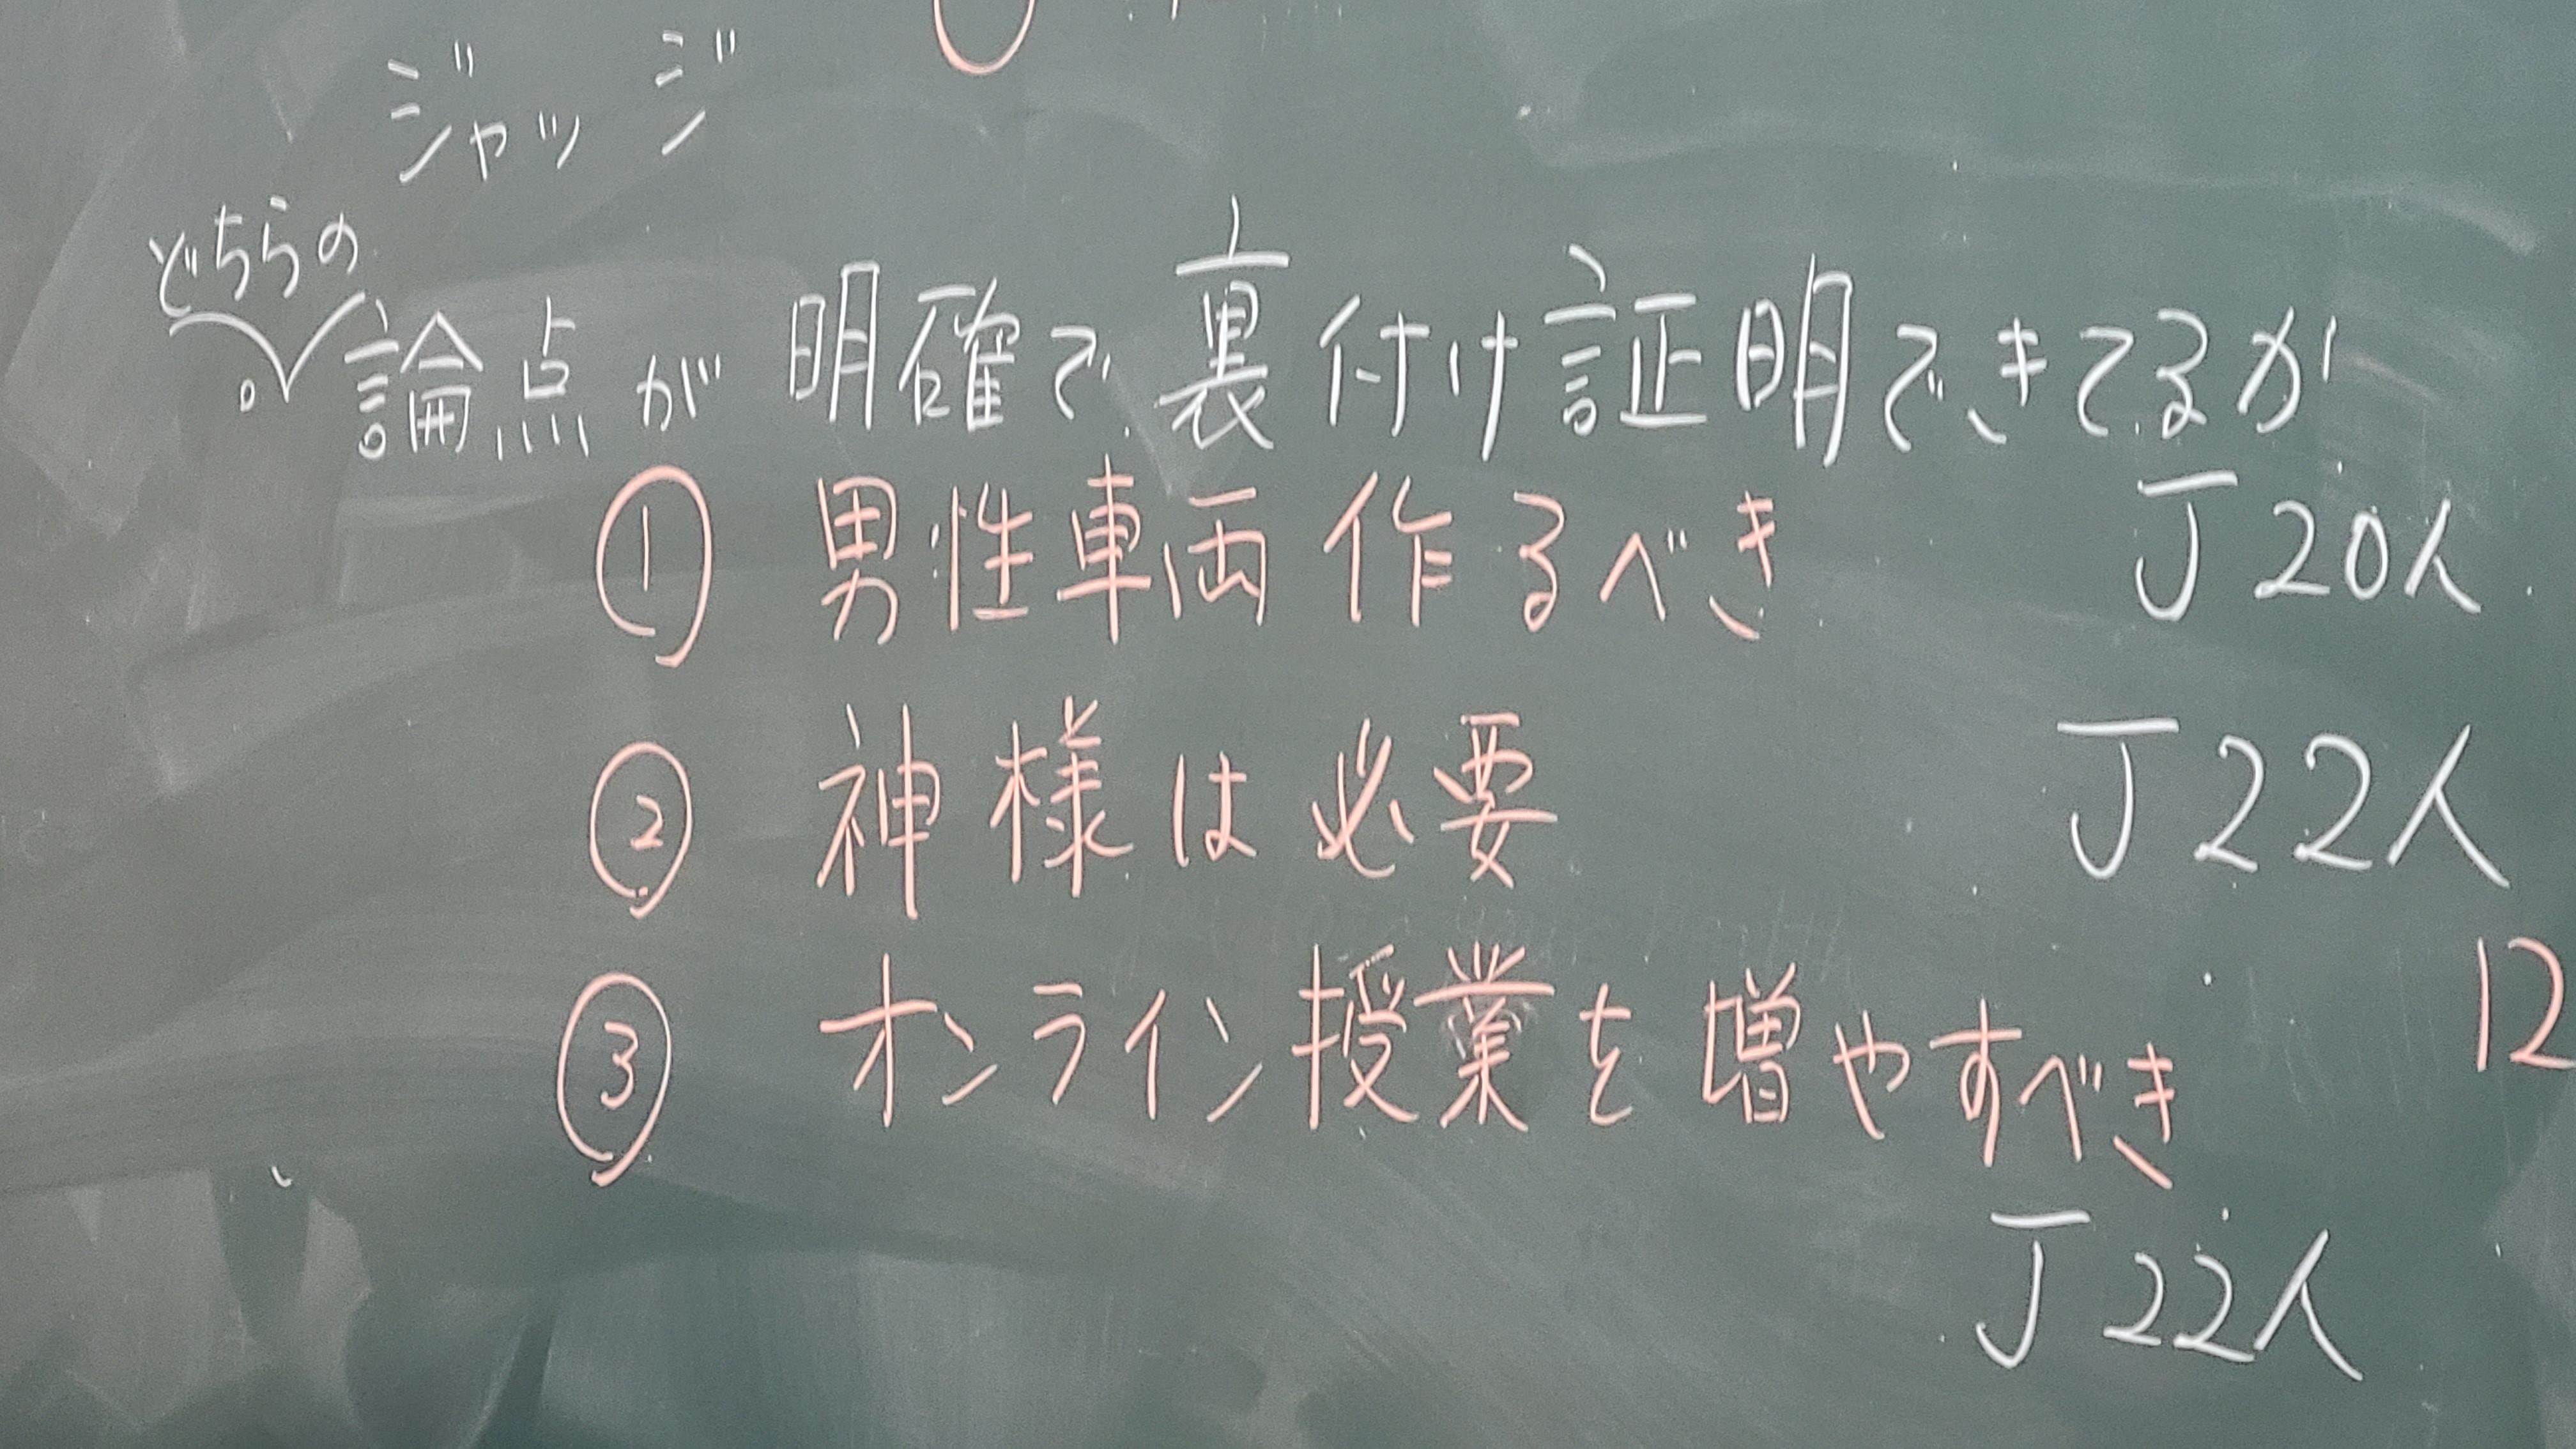 ジャッジ
どちらの
。論点が明確で裏付け証明できてるか
① 男性車両作るべき J20人
② 神様は必要 J22人
③ オンライン授業を増やすべき 12
J22人